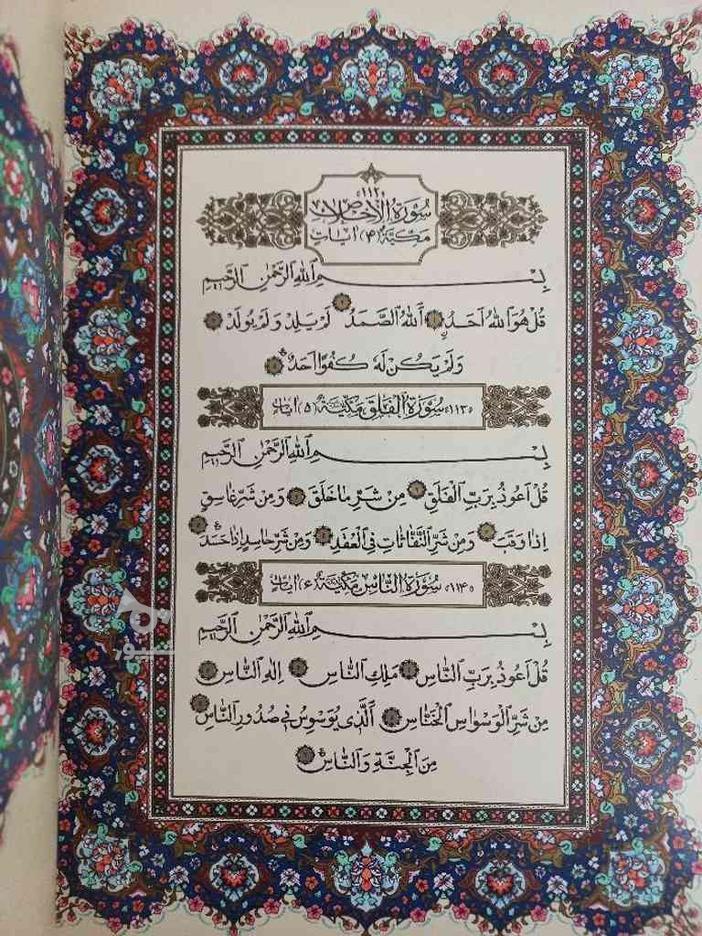 «۱۱۲»
سُورَةُ الْاِخْلَاصِ
مَكِّيَّةٌ (۴) ايَاتٍ
بِسْمِ اللّٰهِ الرَّحْمٰنِ الرَّحِيمِ
قُلْ هُوَ اللّٰهُ اَحَدٌ ۱ اَللّٰهُ الصَّمَدُ ۲ لَمْ يَلِدْ وَلَمْ يُولَدْ ۳
وَلَمْ يَكُنْ لَهُ كُفُوًا اَحَدٌ ۴
«۱۱۳» سُورَةُ الْفَلَقِ مَكِّيَّةٌ (۵) ايَاتٍ
بِسْمِ اللّٰهِ الرَّحْمٰنِ الرَّحِيمِ
قُلْ اَعُوذُ بِرَبِّ الْفَلَقِ ۱ مِنْ شَرِّ مَا خَلَقَ ۲ وَمِنْ شَرِّ غَاسِقٍ
اِذَا وَقَبَ ۳ وَمِنْ شَرِّ النَّفَّاثَاتِ فِي الْعُقَدِ ۴ وَمِنْ شَرِّ حَاسِدٍ اِذَا حَسَدَ ۵
«۱۱۴» سُورَةُ النَّاسِ مَكِّيَّةٌ (۶) ايَاتٍ
بِسْمِ اللّٰهِ الرَّحْمٰنِ الرَّحِيمِ
قُلْ اَعُوذُ بِرَبِّ النَّاسِ ۱ مَلِكِ النَّاسِ ۲ اِلٰهِ النَّاسِ ۳
مِنْ شَرِّ الْوَسْوَاسِ الْخَنَّاسِ ۴ اَلَّذِي يُوَسْوِسُ فِي صُدُورِ النَّاسِ ۵
مِنَ الْجِنَّةِ وَالنَّاسِ ۶